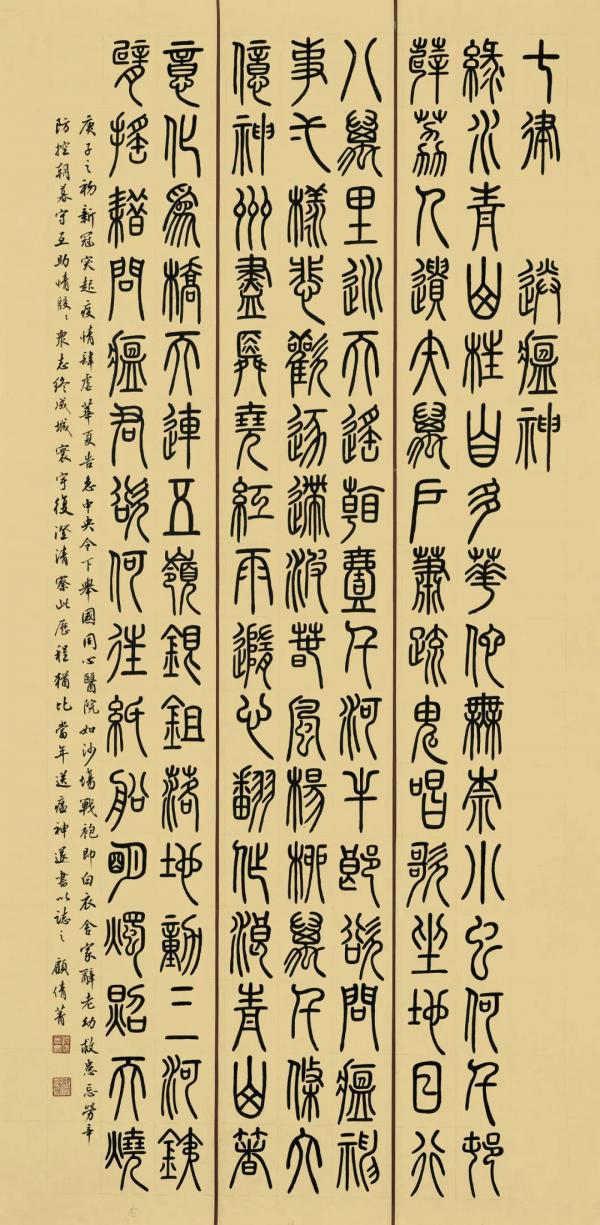 七律 送瘟神
綠水青山枉自多華佗無奈小虫何千邨
薜荔人遺矢萬戶蕭疏鬼唱歌坐地日行
八萬里巡天遙看壹千河牛郎欲問瘟神
事弌樣悲歡逐逝波春風楊柳萬千條六
億神州盡舜堯紅雨隨心翻作浪青山著
意化為橋天連五嶺銀鉏落地動三河鐵
臂搖藉問瘟君欲何往紙船明燭照天燒
庚子之初新冠突起疫情肆虐華夏告急中央令下舉國同心醫院如沙場戰袍即白衣舍家辭老幼救患忘勞辛
防控朝暮守互助情殷〻眾志終成城寰宇復澄清察此歷程猶比當年送瘟神遂書以誌之 顧倩菁